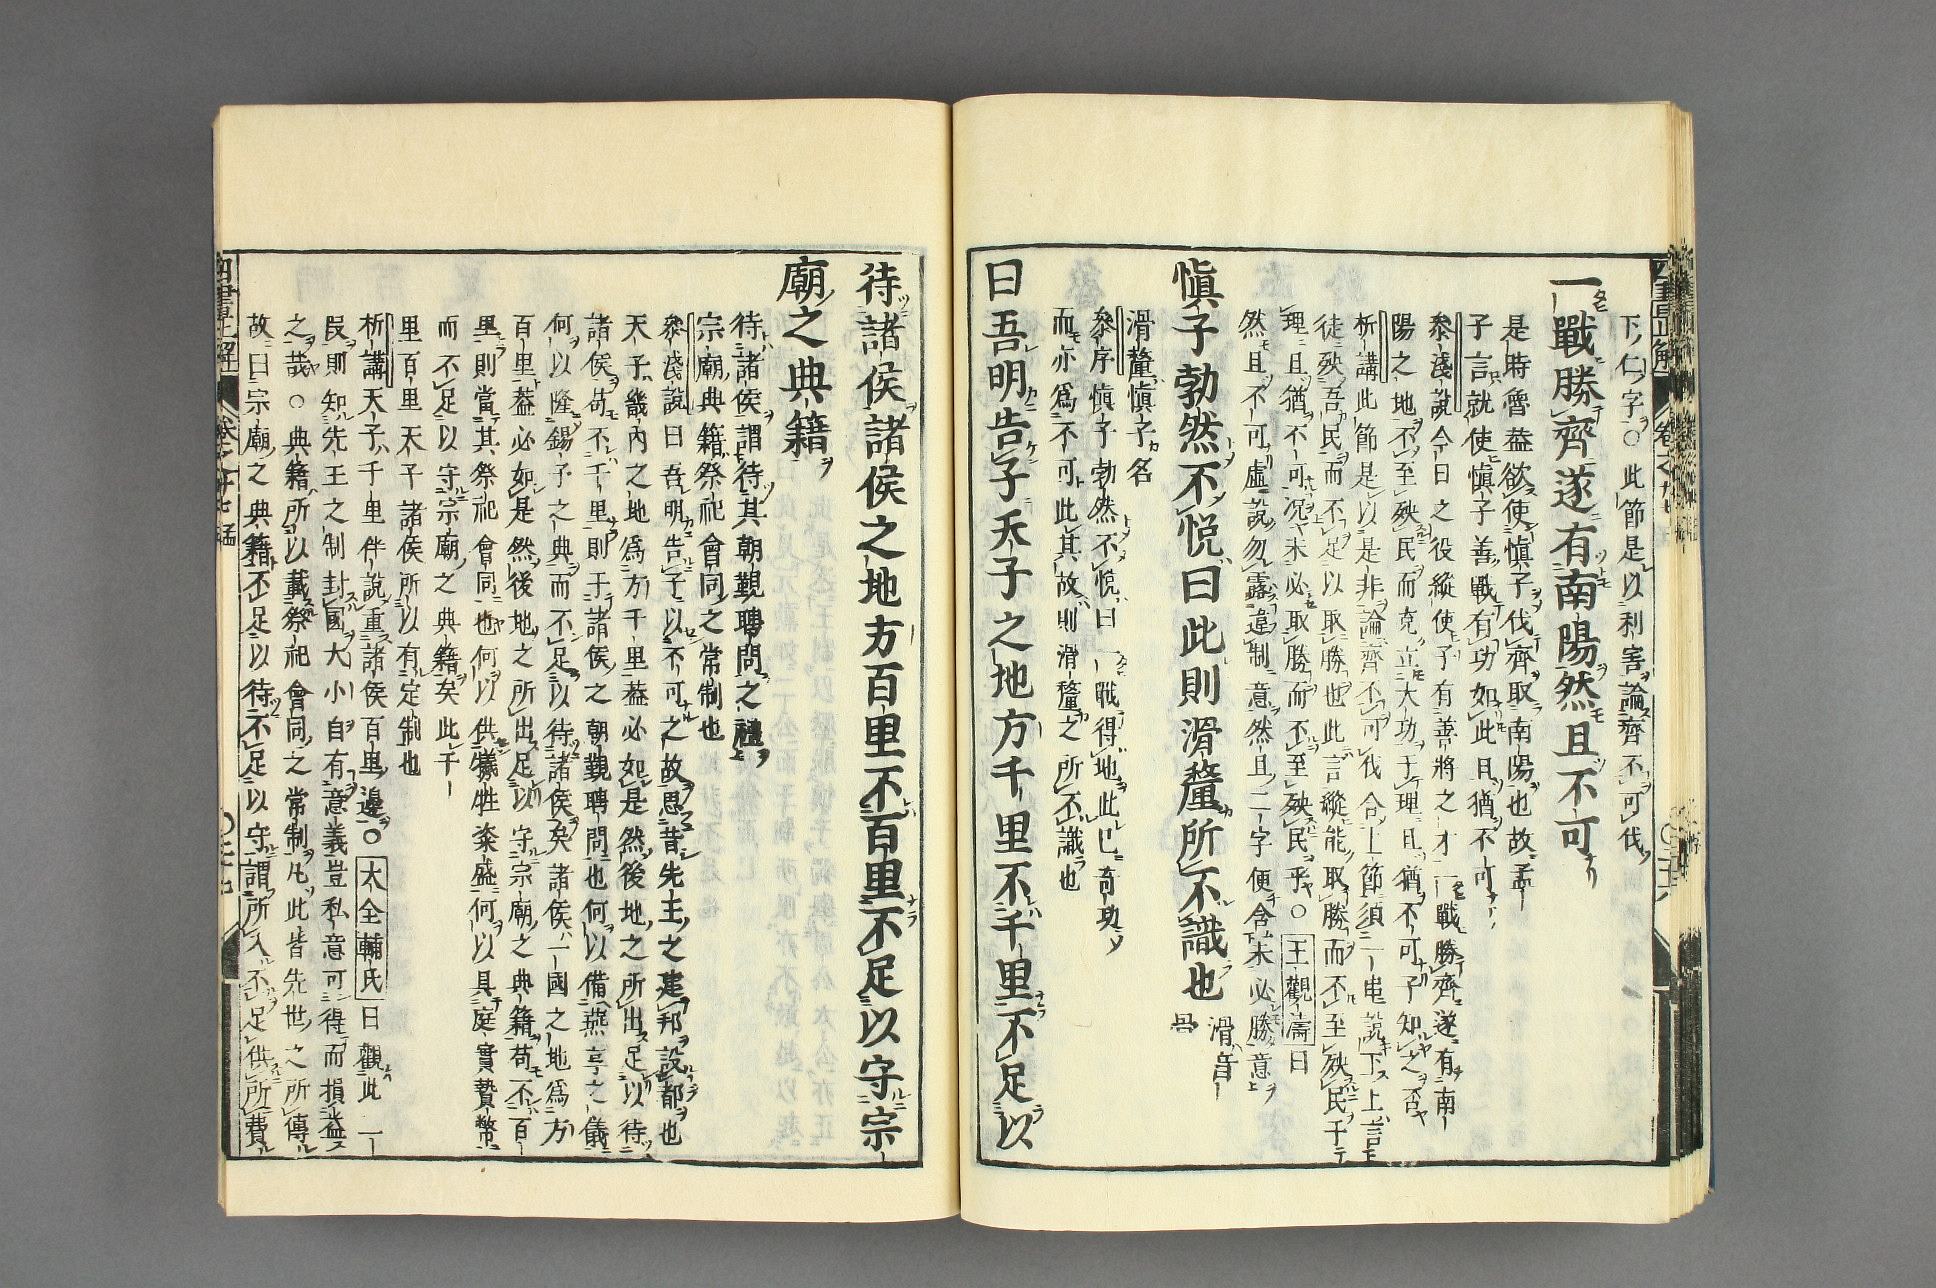 下ノ仁ノ字○此節是以利害論齊不可伐
一戰勝齊遂有南陽然且不可
是時魯蓋欲使愼子伐齊取南陽也故孟
子言就使愼子善戰有功如此且猶不可
叅淺說今日之役縱使子有善將之才一戰勝齊遂有南
陽之地不至殃民而克立大功于理且猶不可子知之否
析講此節是以是非論齊不可伐合上節須一串說下上言
徒殃吾民而不足以取勝也此言縱能取勝而不至殃民于
理且猶不可況未必取勝而不至殃民乎○王觀濤曰
然且不可虛說勿露違制意然且二字便含未必勝意
愼子勃然不悅曰此則滑釐所不識也 滑音骨
滑釐愼子名
叅序愼子勃然不悅曰一戰得地此已奇功
而亦爲不可此其故則滑釐之所不識也
曰吾明告子天子之地方千里不千里不足以
待諸侯諸侯之地方百里不百里不足以守宗
廟之典籍
待諸侯謂待其朝覲聘問之禮
宗廟典籍祭祀會同之常制也
叅淺說曰吾明告子以不可之故思昔先王之建邦設都也
天子畿內之地爲方千里蓋必如是然後地之所出足以待
諸侯苟不千里則于諸侯之朝覲聘問也何以備燕享之儀
何以隆錫予之典而不足以待諸侯矣諸侯一國之地爲方
百里蓋必如是然後地之所出足以守宗廟之典籍苟不百
里則當其祭祀會同也何以供犧牲粢盛何以具庭實贄幣
而不足以守宗廟之典籍矣此千
里百里天子諸侯所以有定制也
析講天子千里伴說重諸侯百里邊○大全輔氏曰觀此一
段則知先王之制封國大小自有意義豈私意可得而損益
之哉○典籍所以載祭祀會同之常制凡此皆先世之所傳
故曰宗廟之典籍不足以待不足以守謂所入不足供所費